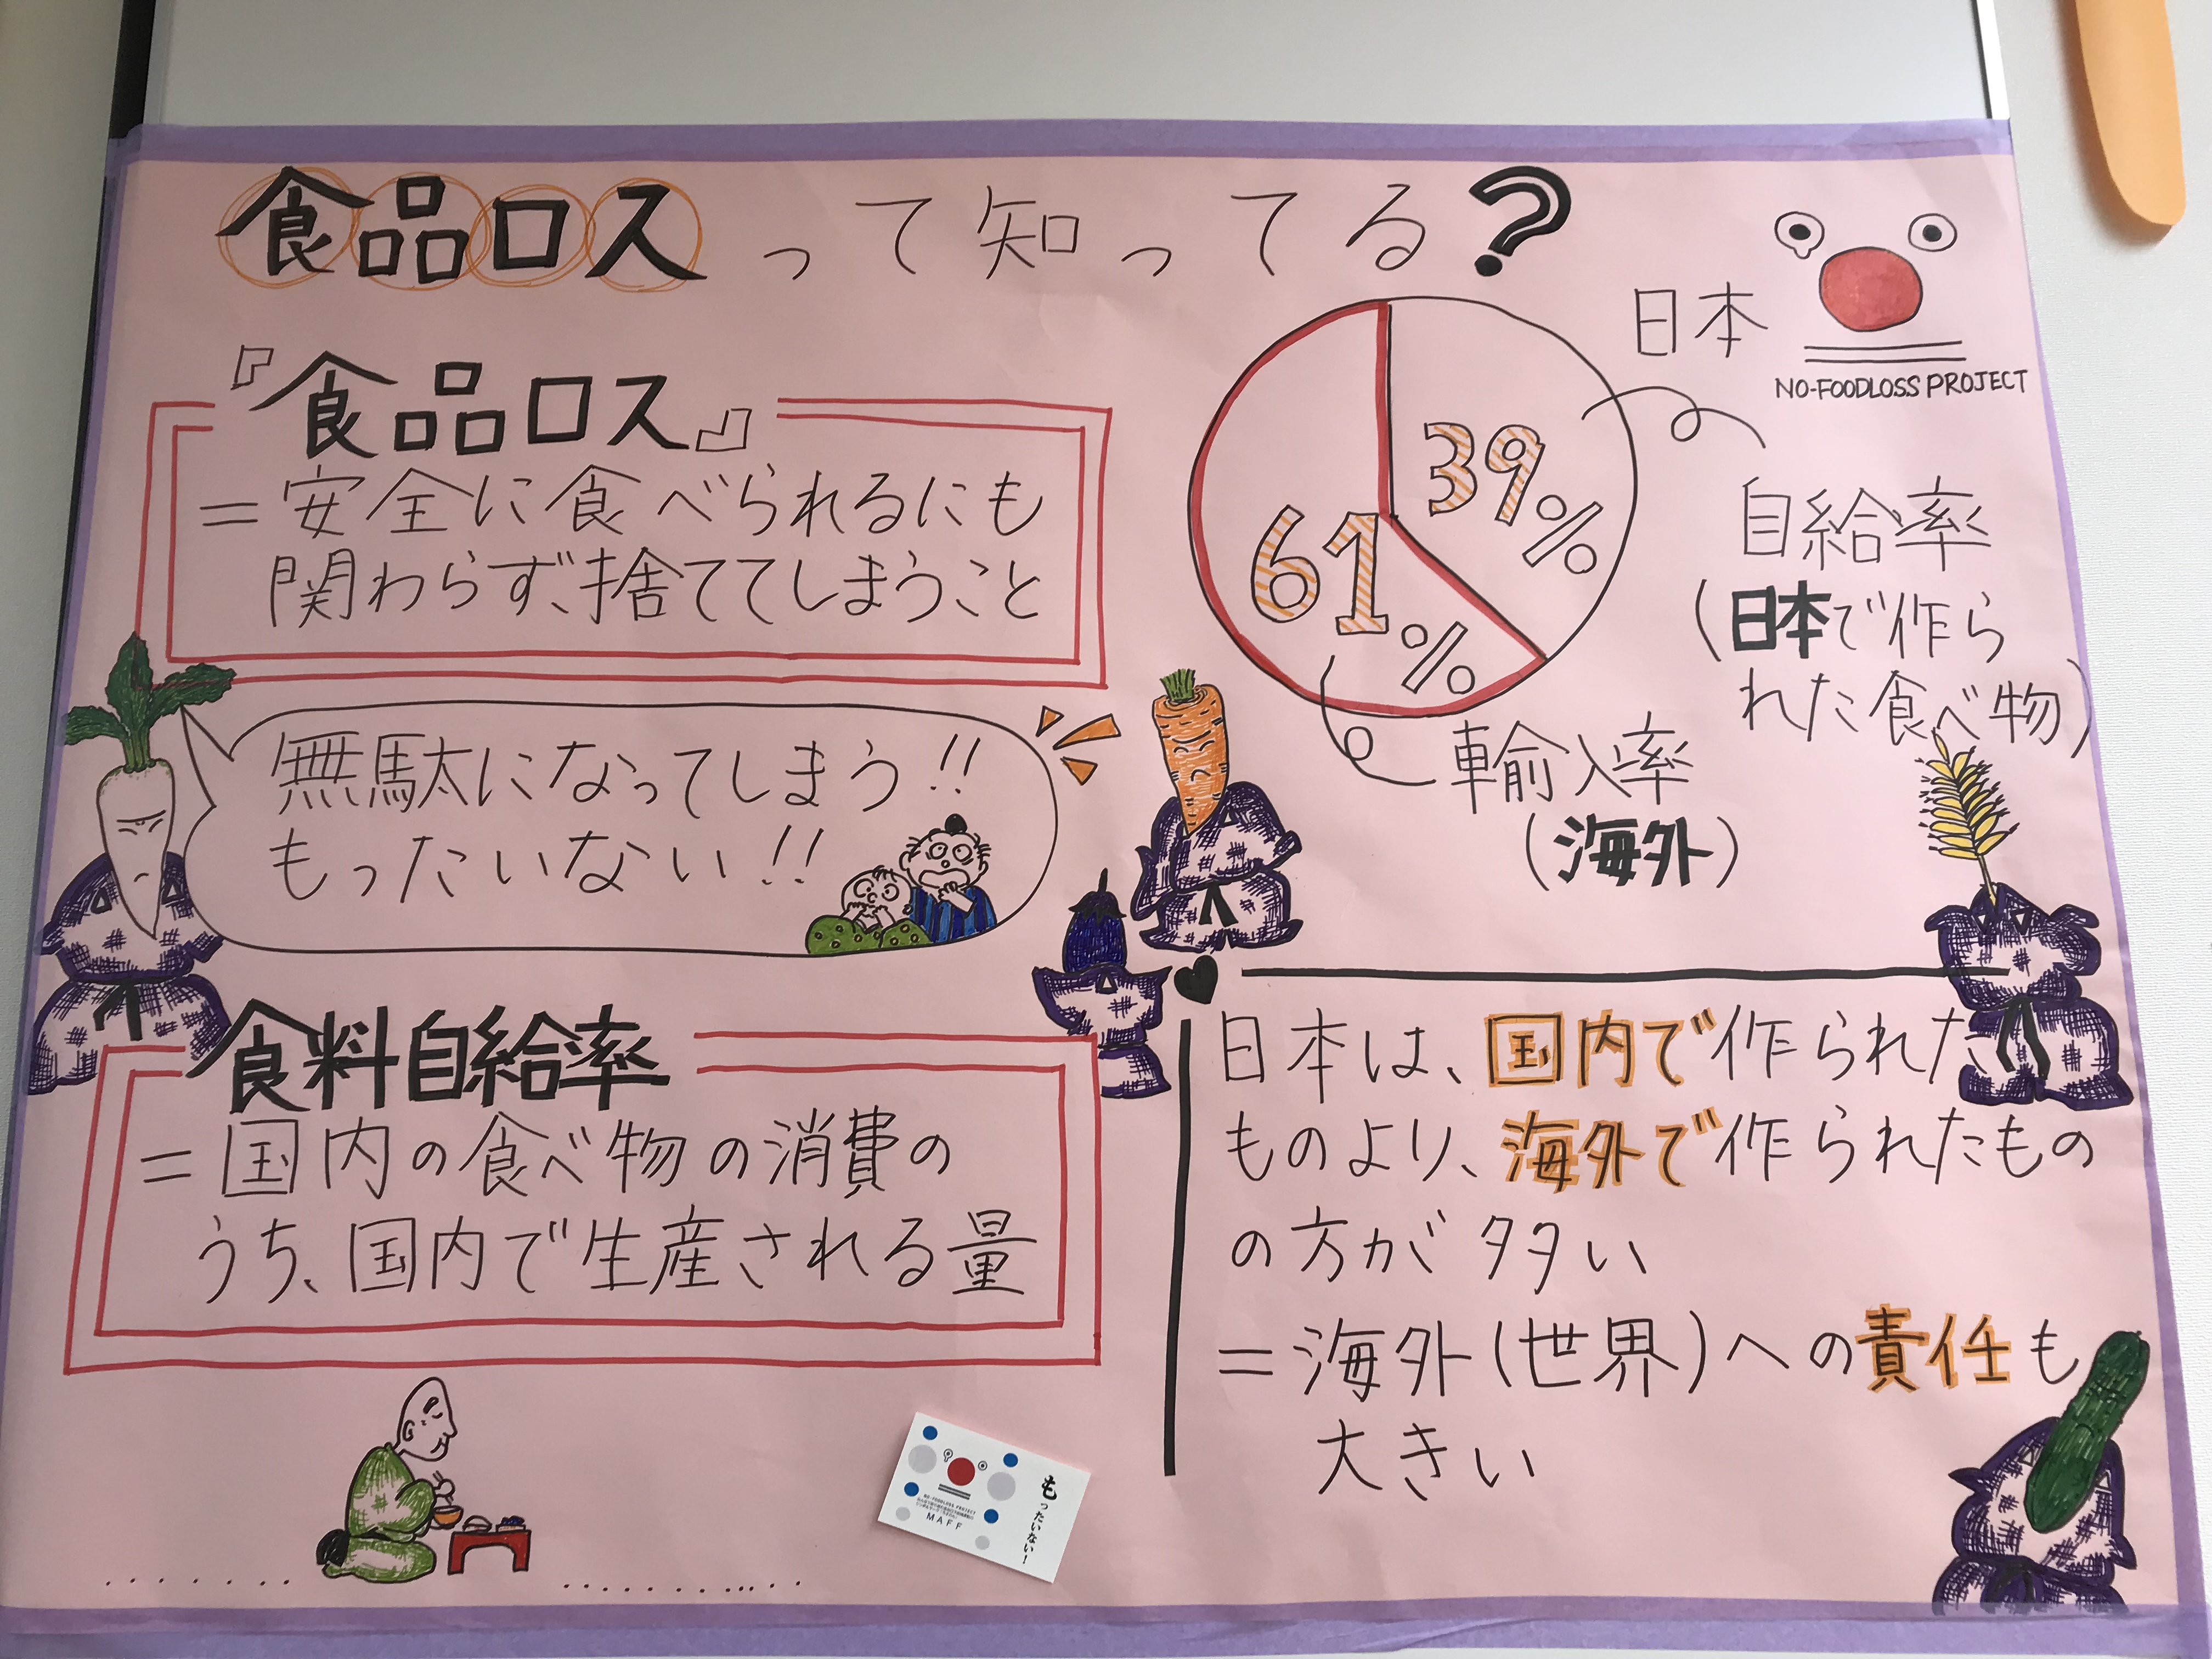 食品ロスって知ってる?
『食品ロス』
=安全に食べられるにも
関わらず、捨ててしまうこと
無駄になってしまう!!
もったいない!!
食料自給率
=国内の食べ物の消費の
うち、国内で生産される量
日本
39%
61%
自給率
(日本で作ら
れた食べ物)
輸入率
(海外)
NO-FOODLOSS PROJECT
日本は、国内で作られた
ものより、海外で作られたもの
の方が多い
=海外(世界)への責任も
大きい
もったいない!
NO-FOODLOSS PROJECT
MAFF